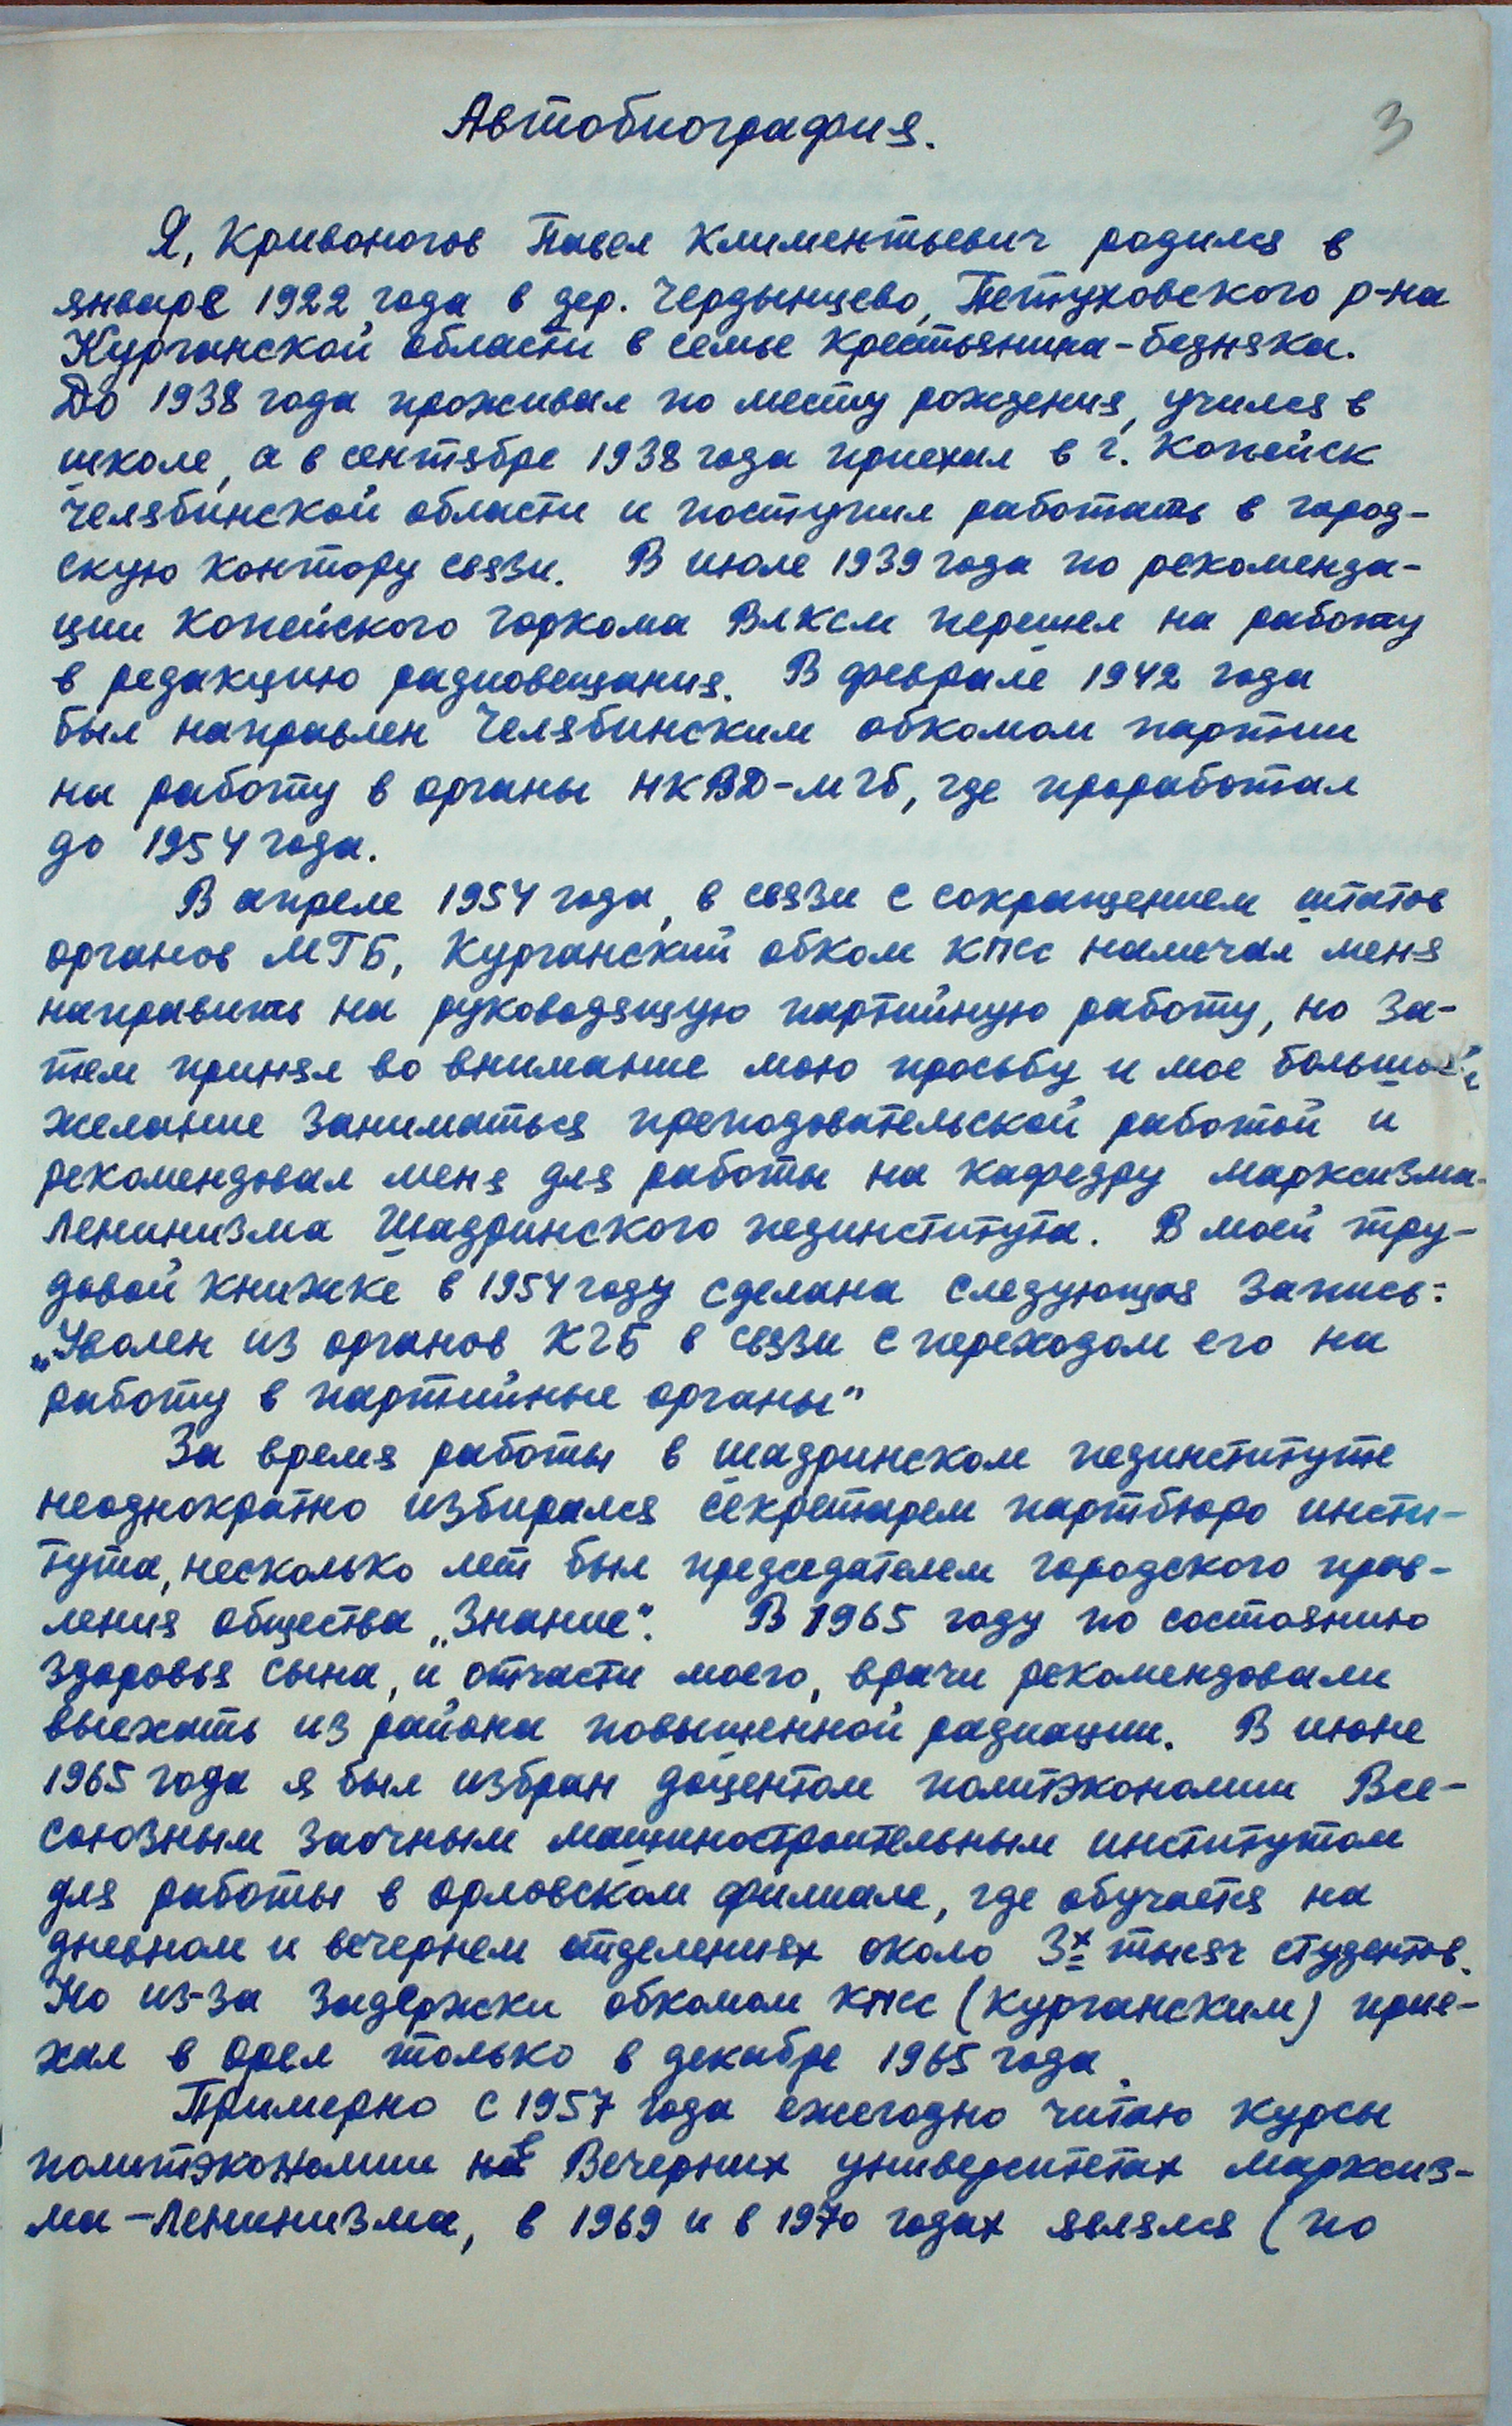 Автобиография.
3
Я, Кривоногов Павел Климентьевич родился в
январе 1922 года в дер. Чердынцево, Петуховского р-на
Курганской области в семье крестьянина-бедняка.
До 1938 года проживал по месту рождения, учился в
школе, а в сентябре 1938 года приехал в г. Копейск
Челябинской области и поступил работать в город-
скую контору связи. В июле 1939 года по рекоменда-
ции Копейского горкома ВЛКСМ перешел на работу
в редакцию радиовещания. В феврале 1942 года
был направлен Челябинским обкомом партии
на работу в органы НКВД-МГБ, где проработал
до 1954 года.
В апреле 1954 года, в связи с сокращением штатов
органов МГБ, Курганский обком КПСС намечал меня
направить на руководящую партийную работу, но за-
тем принял во внимание мою просьбу и мое большое
желание заниматься преподовательской работой и
рекомендовал меня для работы на кафедру марксизма-
ленинизма Шадринского пединститута. В моей тру-
довой книжке в 1954 году сделана следующая запись:
„Уволен из органов КГБ в связи с переходом его на
работу в партийные органы"
За время работы в шадринском пединституте
неоднократно избирался секретарем партбюро инсти-
тута, несколько лет был председателем городского прав-
ления общества „Знание". В 1965 году по состоянию
здоровья сына, и отчасти моего, врачи рекомендовали
выехать из района повышенной радиации. В июне
1965 года я был избран доцентом политэкономии Все-
союзным заочным машиностроительным институтом
для работы в орловском филиале, где обучается на
дневном и вечернем отделениях около 3х тысяч студентов.
Но из-за задержки обкомом КПСС (Курганским) прие-
хал в Орел только в декабре 1965 года.
Примерно с 1957 года ежегодно читаю курсы
политэкономии в Вечерних университетах марксиз-
ма-ленинизма, в 1969 и в 1970 годах являлся (по